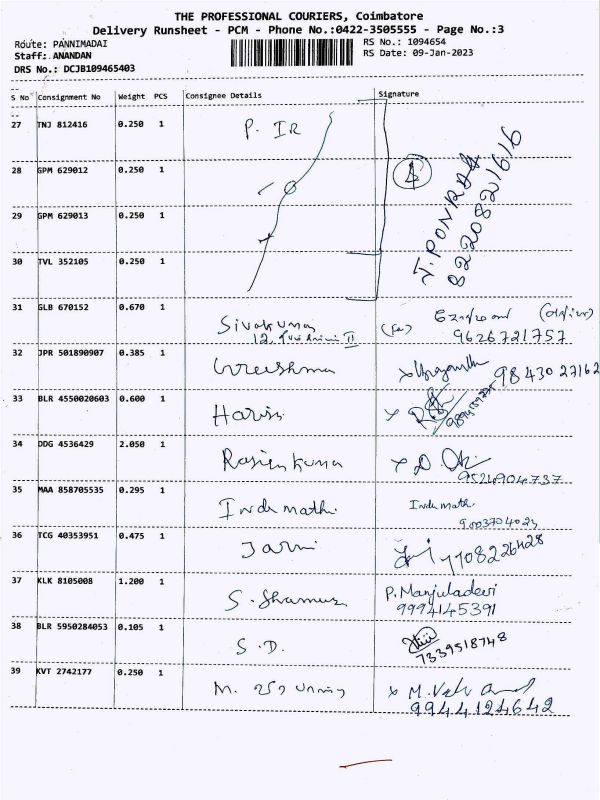 THE PROFESSIONAL COURIERS, Coimbatore
Delivery Runsheet - PCM - Phone No.:0422-3505555 - Page No.:3
Route: PANNIMADAI
RS No.: 1094654
Staff: ANANDAN
RS Date: 09-Jan-2023
DRS No.: DCJB109465403
S No Consignment No Weight PCS Consignee Details Signature
27 TNJ 812416 0.250 1 P. IR
28 GPM 629012 0.250 1
29 GPM 629013 0.250 1
J. PONRAJ
8220821616
30 TVL 352105 0.250 1
31 GLB 670152 0.670 1 Sivakumar
12,
9626721757
32 JPR 501890907 0.385 1 Greeshma 9843027162
33 BLR 4550020603 0.600 1 Harish
34 DDG 4536429 2.050 1 Rasienkumar
9524904737
35 MAA 858705535 0.295 1 Indumathi Indumathi
9003704023
36 TCG 40353951 0.475 1 7708226428
37 KLK 8105008 1.200 1 S. Shamus P. Manjuladevi
9994145391
38 BLR 5950284053 0.105 1 S.D.
7339518748
39 KVT 2742177 0.250 1 M.
9944124642